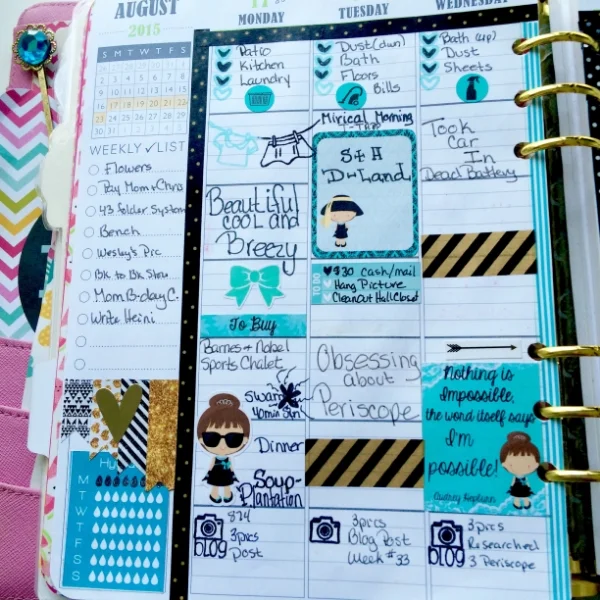 AUGUST
2015
S M T W T F S
16 17 18 19 20 21 22
30 31
WEEKLY ✓LIST
Flowers
Pay Mom + Chris
43 folder System
Bench
Wesley's Prc
Bk to Bk Show
Mom B-day C.
Write Heini
M
T
W
T
F
S
S
MONDAY
Patio
Kitchen
Laundry
Beautiful
cool and
Breezy
To Buy
Barnes + Nobel
Sports Chalet
Swan
Yomin Sun
Dinner
Soup-
Plantation
blog
824
3pics
Post
TUESDAY
Dust (dwn)
Bath
Floors
Bills
Mirical Morning
S + H
D-Land
TO DO
$30 cash/mail
Hang Picture
Clean Out Hall Closet
Obsessing
about
Periscope
3pics
Blog Post
Week #33
WEDNESDAY
Bath (up)
Dust
Sheets
Took
Car
In
Dead Battery
Nothing is
Impossible,
the word itself says
I'm
possible!
Audrey Hepburn
blog
3pics
Researched
3 Periscope